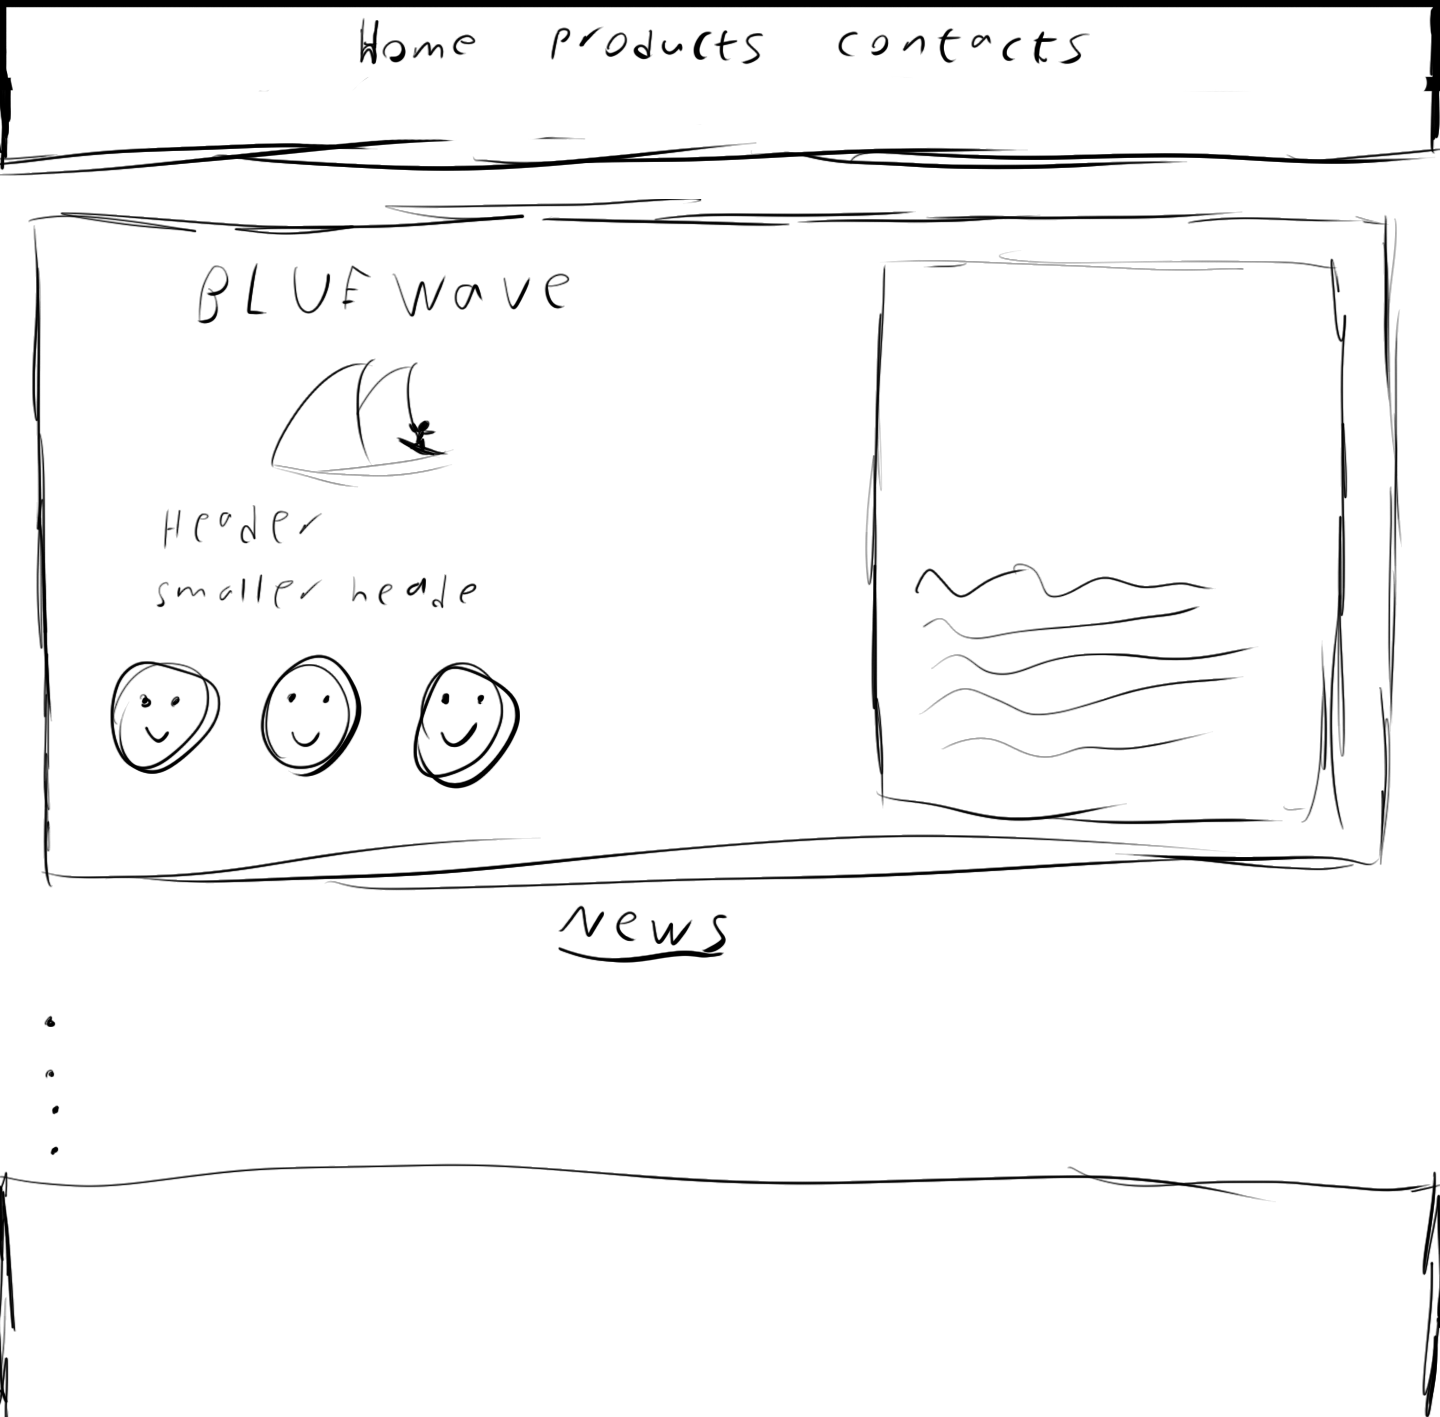 Home products contacts
BLUE wave
Header
smaller heade
News